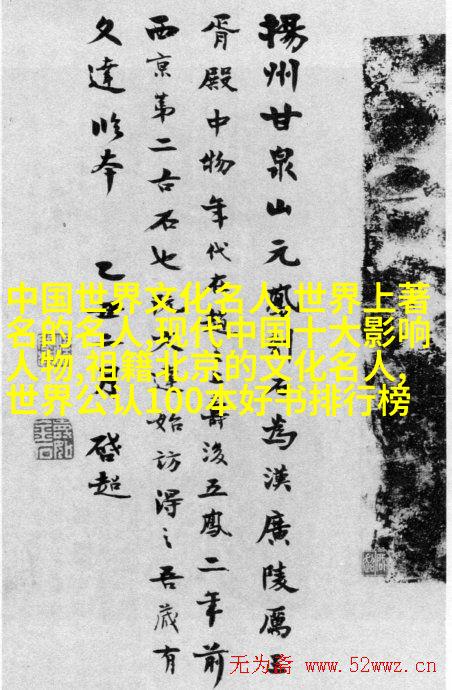 揚州甘泉山元鳳石為漢廣陵厲王
胥殿中物年代在後五鳳二年前
西京第二古石也始訪得之吾藏有
文達本 乙丑月
啓超
中国世界文化名人,世界上著
名的名人,现代中国十大影响
人物,祖籍北京的文化名人,
世界公认100本好书排行榜
无为斋 www.52wwz.cn